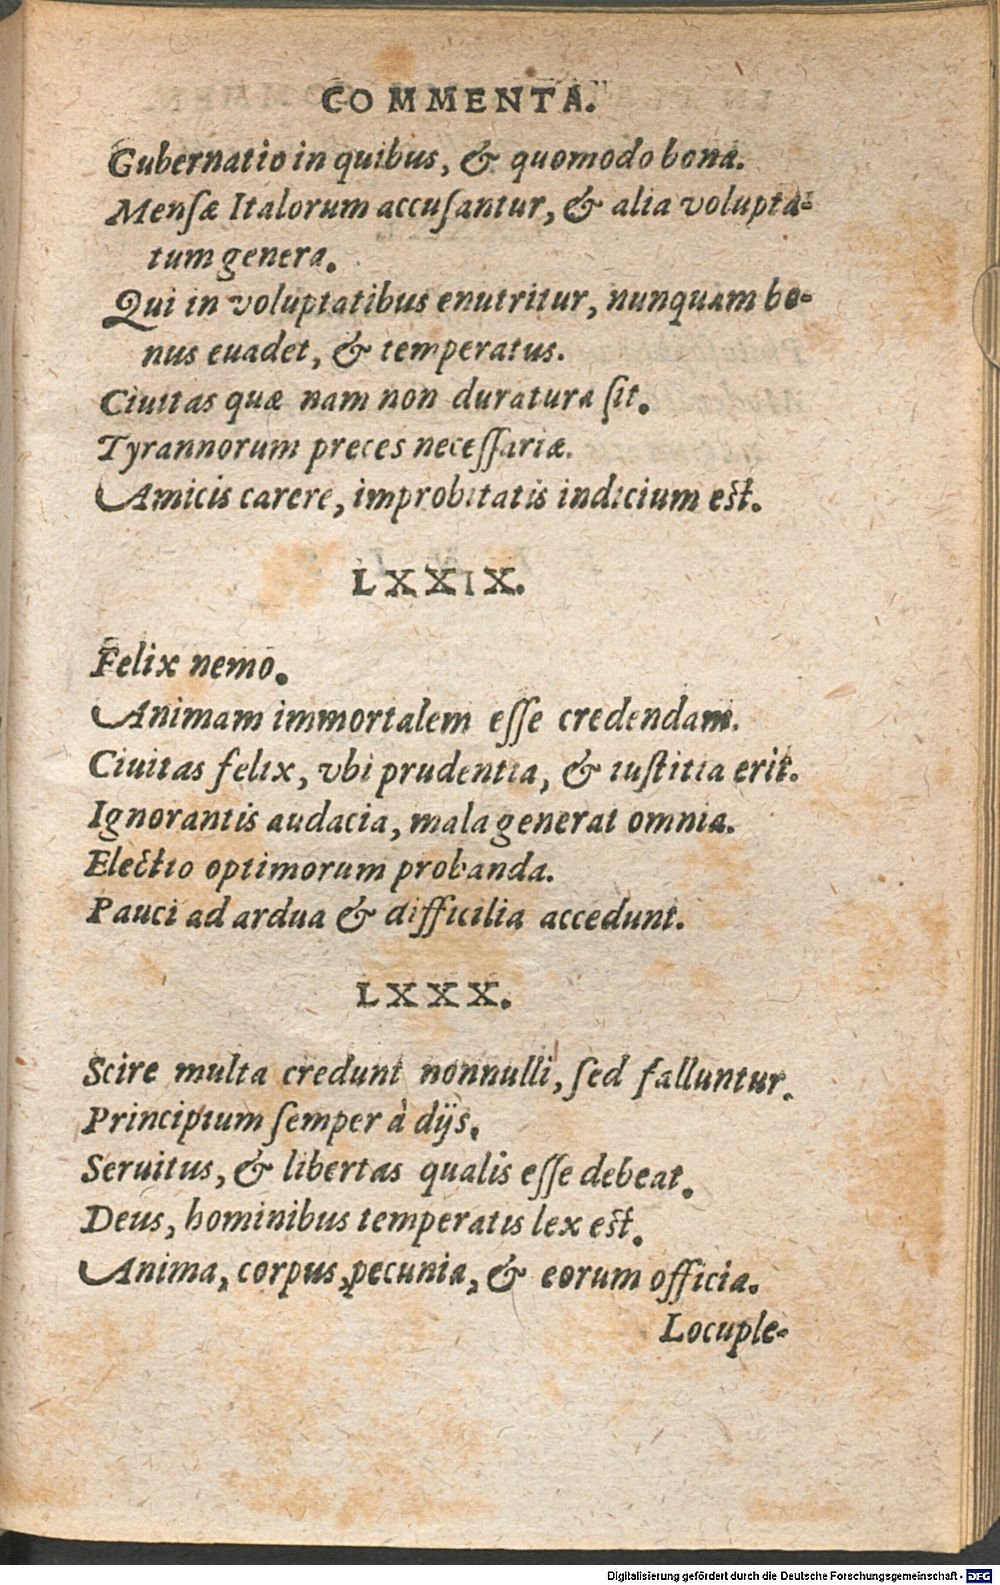 COMMENTA.
Gubernatio in quibus, & quomodo bona.
Mensæ Italorum accusantur, & alia volupta-
tum genera.
Qui in voluptatibus enutritur, nunquam bo-
nus euadet, & temperatus.
Ciuitas quæ nam non duratura sit.
Tyrannorum preces necessariæ.
Amicis carere, improbitatis indicium est.
LXXIX.
Felix nemo.
Animam immortalem esse credendam.
Ciuitas felix, vbi prudentia, & iustitia erit.
Ignorantis audacia, mala generat omnia.
Electio optimorum probanda.
Pauci ad ardua & difficilia accedunt.
LXXX.
Scire multa credunt nonnulli, sed falluntur.
Principium semper à dijs.
Seruitus, & libertas qualis esse debeat.
Deus, hominibus temperatis lex est.
Anima, corpus, pecunia, & eorum officia.
Locuple-
Digitalisierung gefördert durch die Deutsche Forschungsgemeinschaft - DFG